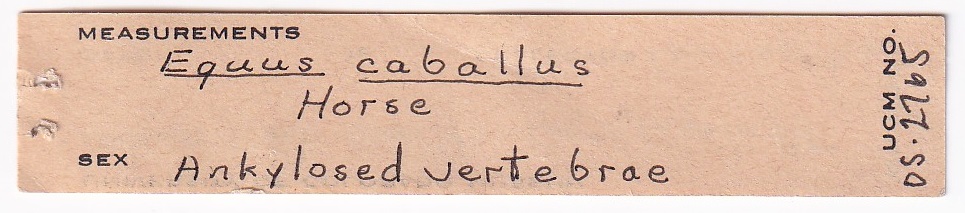 MEASUREMENTS
Equus caballus
Horse
SEX Ankylosed vertebrae
UCM NO.
OS-2765